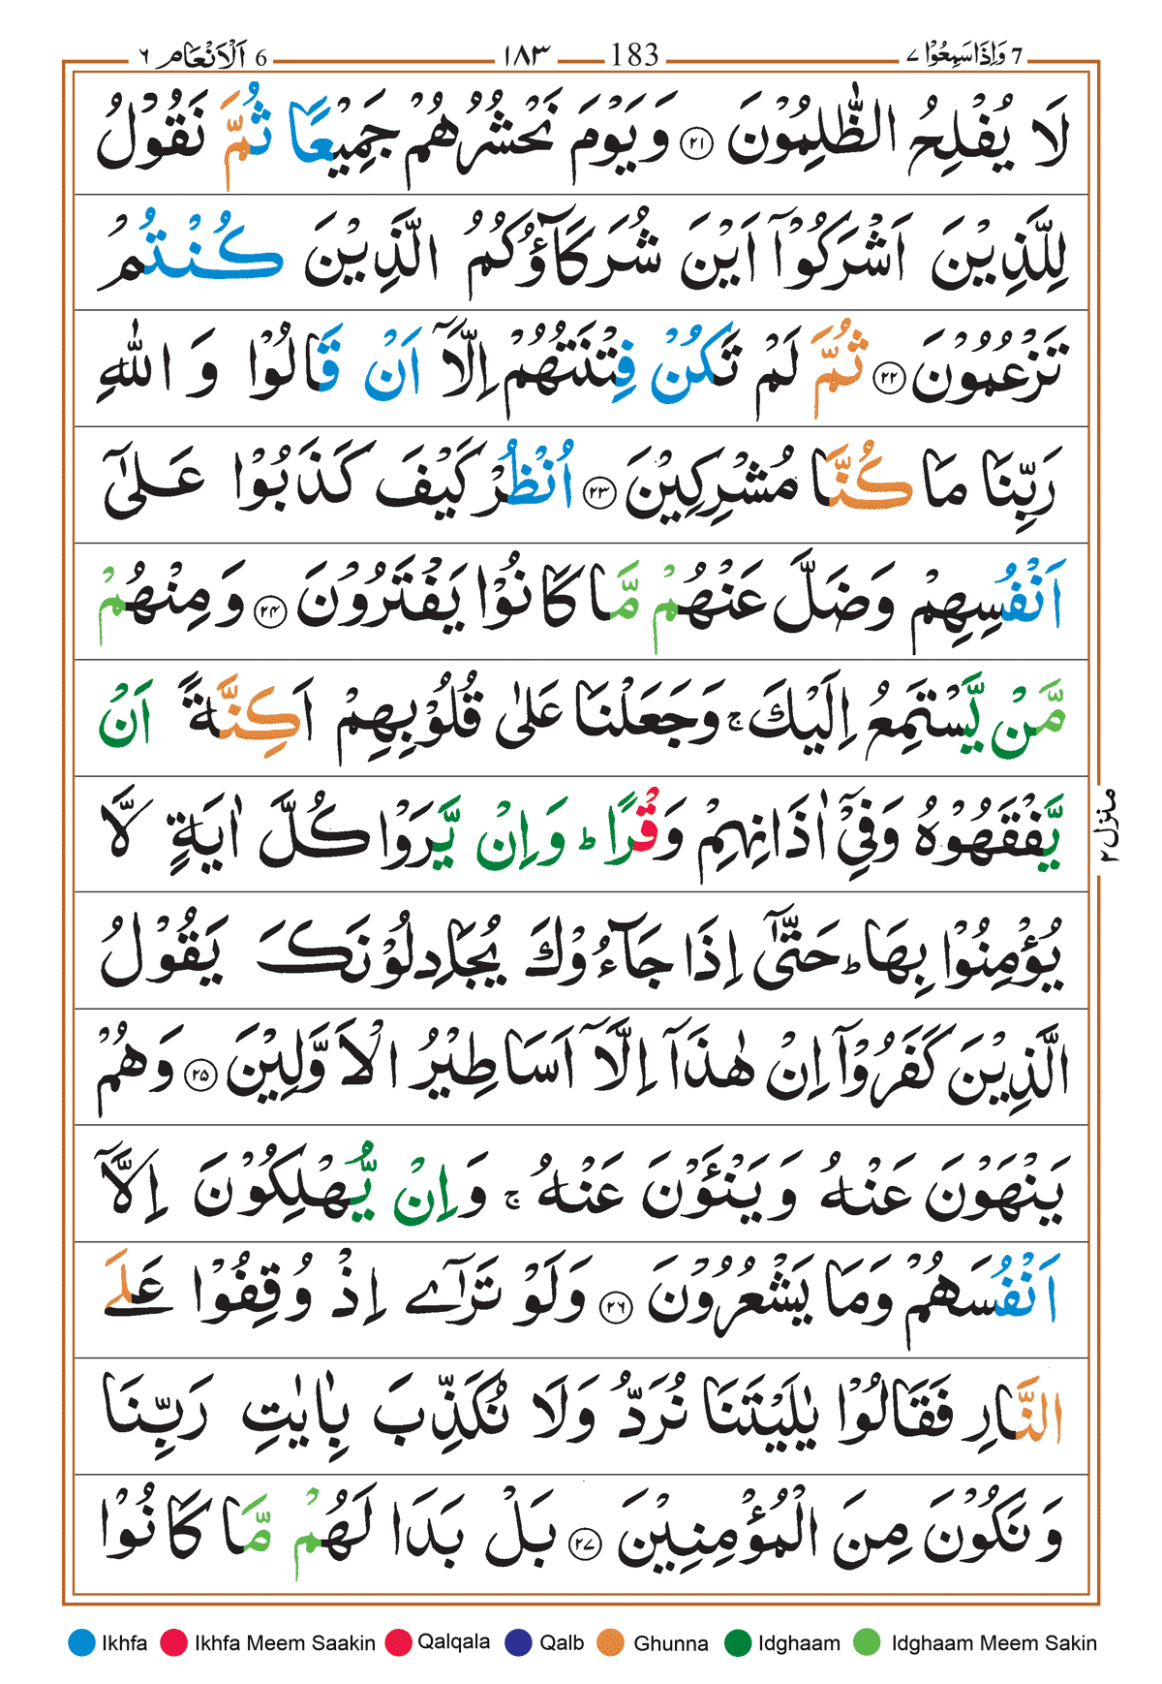 6 اَلْاَنْعَام ٦ ١٨٣ 183 وَاِذَا سَمِعُوْا ٧ 7
لَا يُفْلِحُ الظّٰلِمُوْنَ ﴿٢١﴾ وَيَوْمَ نَحْشُرُهُمْ جَمِيْعًا ثُمَّ نَقُوْلُ
لِلَّذِيْنَ اَشْرَكُوْۤا اَيْنَ شُرَكَآؤُكُمُ الَّذِيْنَ كُنْتُمْ
تَزْعُمُوْنَ ﴿٢٢﴾ ثُمَّ لَمْ تَكُنْ فِتْنَتُهُمْ اِلَّاۤ اَنْ قَالُوْا وَ اللّٰهِ
رَبِّنَا مَا كُنَّا مُشْرِكِيْنَ ﴿٢٣﴾ اُنْظُرْ كَيْفَ كَذَبُوْا عَلٰۤى
اَنْفُسِهِمْ وَضَلَّ عَنْهُمْ مَّا كَانُوْا يَفْتَرُوْنَ ﴿٢٤﴾ وَمِنْهُمْ
مَّنْ يَّسْتَمِعُ اِلَيْكَ ۚ وَجَعَلْنَا عَلٰى قُلُوْبِهِمْ اَكِنَّةً اَنْ
يَّفْقَهُوْهُ وَفِيْۤ اٰذَانِهِمْ وَقْرًا ؕ وَاِنْ يَّرَوْا كُلَّ اٰيَةٍ لَّا
يُؤْمِنُوْا بِهَا ؕ حَتّٰۤى اِذَا جَآءُوْكَ يُجَادِلُوْنَكَ يَقُوْلُ
الَّذِيْنَ كَفَرُوْۤا اِنْ هٰذَاۤ اِلَّاۤ اَسَاطِيْرُ الْاَوَّلِيْنَ ﴿٢٥﴾ وَهُمْ
يَنْهَوْنَ عَنْهُ وَيَنْـَٔوْنَ عَنْهُ ۚ وَاِنْ يُّهْلِكُوْنَ اِلَّاۤ
اَنْفُسَهُمْ وَمَا يَشْعُرُوْنَ ﴿٢٦﴾ وَلَوْ تَرٰۤى اِذْ وُقِفُوْا عَلَى
النَّارِ فَقَالُوْا يٰلَيْتَنَا نُرَدُّ وَلَا نُكَذِّبَ بِاٰيٰتِ رَبِّنَا
وَنَكُوْنَ مِنَ الْمُؤْمِنِيْنَ ﴿٢٧﴾ بَلْ بَدَا لَهُمْ مَّا كَانُوْا
منزل ٢
Ikhfa Ikhfa Meem Saakin Qalqala Qalb Ghunna Idghaam Idghaam Meem Sakin